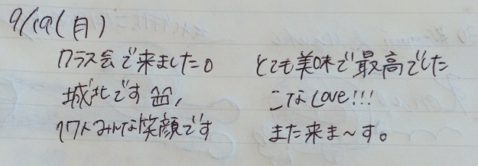 9/19(月)
クラス会で来ました。
城北です
17人みんな笑顔です
とても美味で最高でした
こなLove!!!
また来ま〜す。